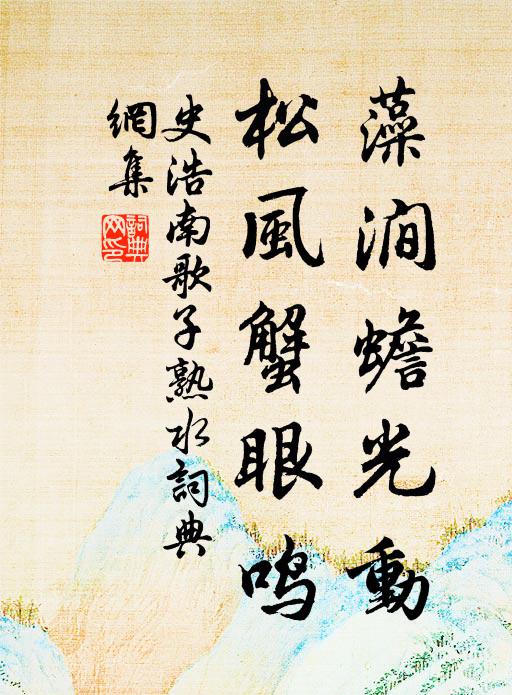 藻澗蟾光動
松風蟹眼鳴
史浩南歌子熟水詞典
網集
詞典
网印